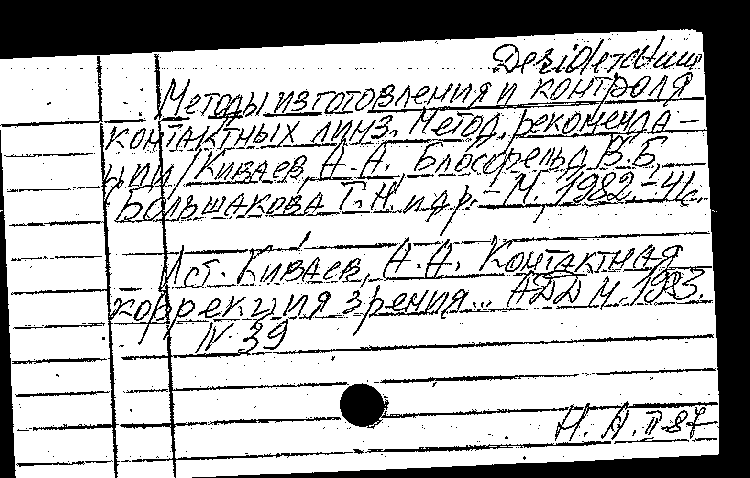 Dezideratum
Методы изготовления и контроля
контактных линз. Метод. рекоменда-
ции / Киваев, А.А. Блосфельд В.Б.,
Большакова Т.Н. и др. - М., 1982. - 41с.
Ист. Киваев, А.А. Контактная
коррекция зрения... АДД М. 1983.
N 39
Н. А. II-87